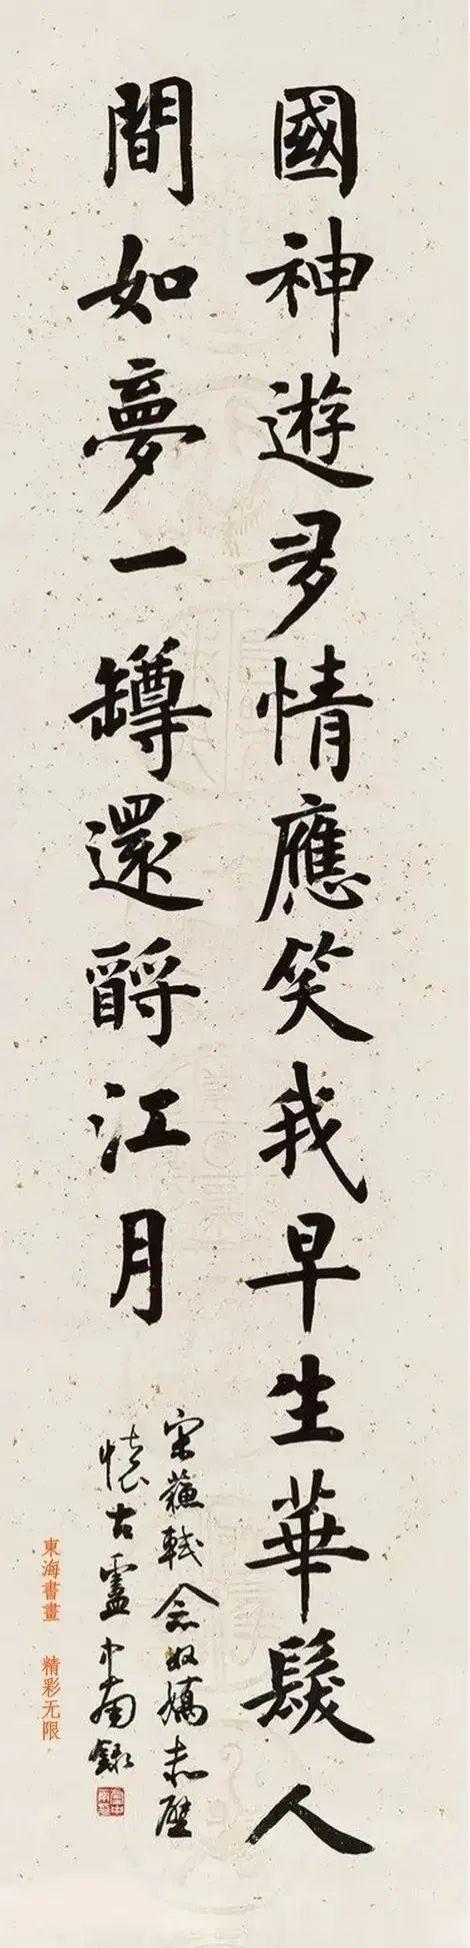 國神遊多情應笑我早生華髮人
間如夢一罇還酹江月
宋蘇軾念奴嬌赤壁
懷古盧中南錄
東海書畫 精彩无限